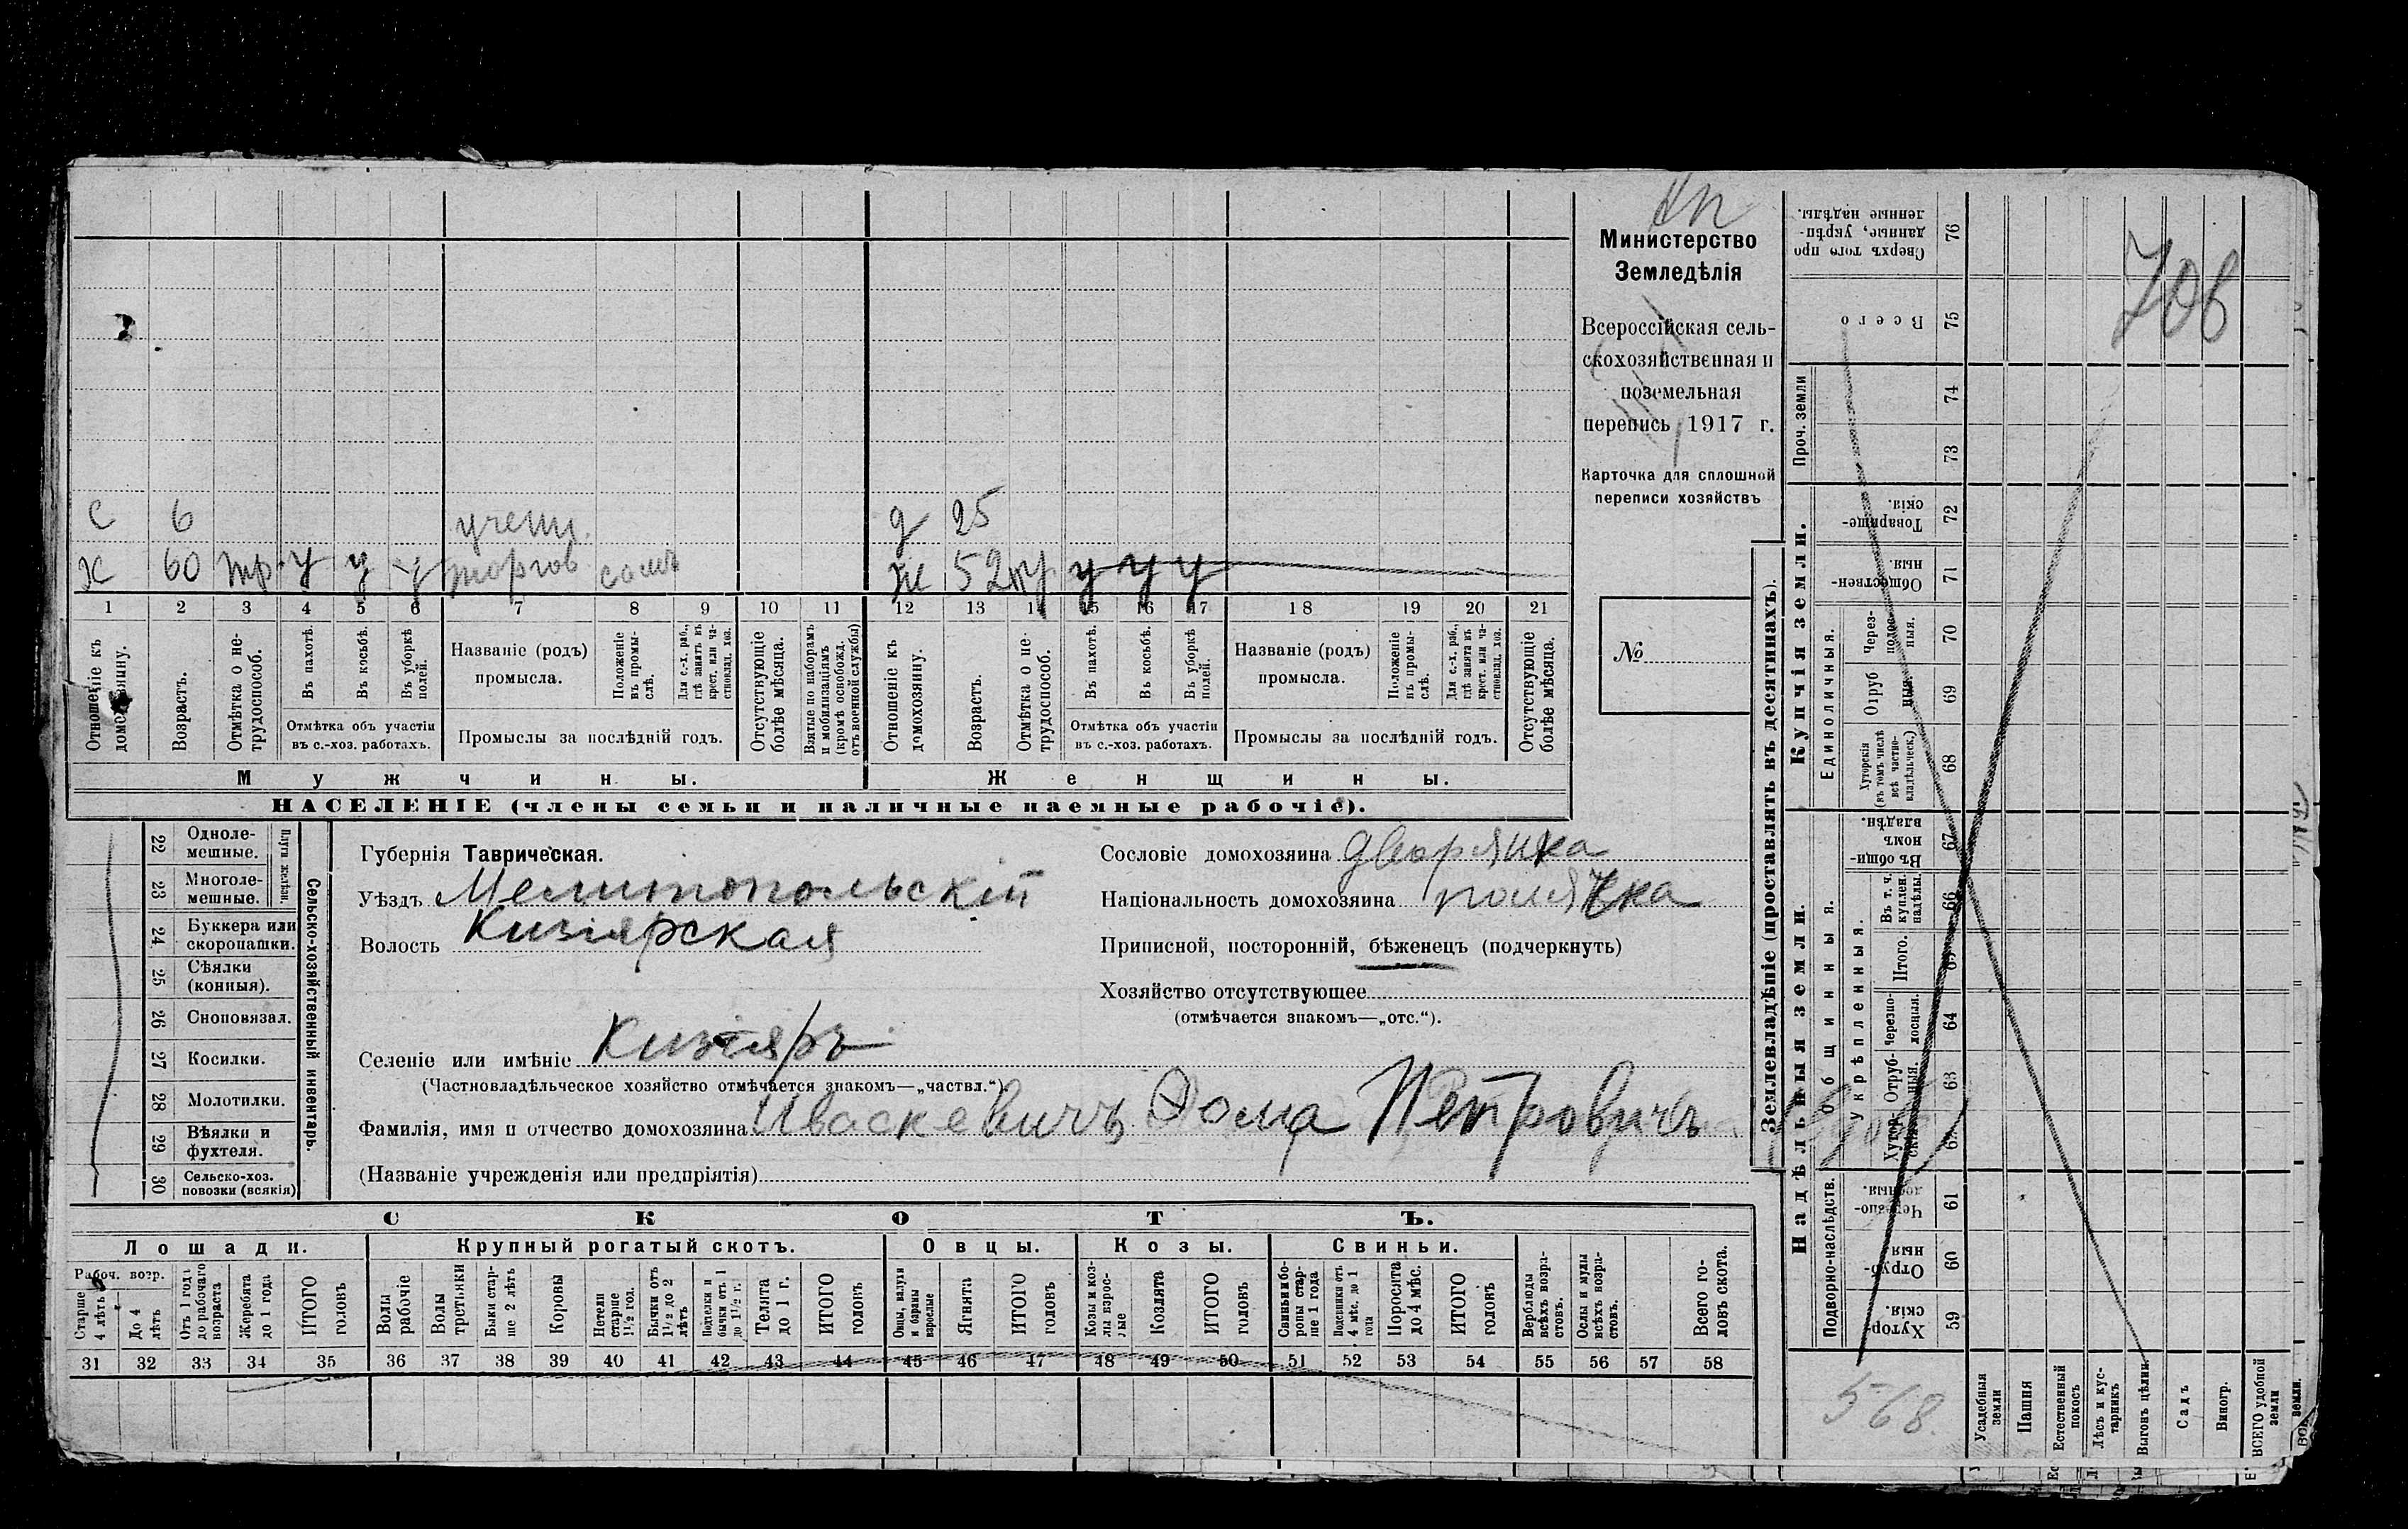 Кп
Министерство
Земледѣлія
Всероссійская сель-
скохозяйственная и
поземельная
перепись 1917 г.
Карточка для сплошной
переписи хозяйствъ
№
С 6 учени. д 25
Х 60 тр у у у торгов самъ Ж 52 у у у
1 2 3 4 5 6 7 8 9 10 11 12 13 14 15 16 17 18 19 20 21
Отношеніе къ домохозяину.
Возрастъ.
Отмѣтка о не-трудоспособ.
Въ пахотѣ.
Въ косьбѣ.
Въ уборкѣ полей.
Отмѣтка объ участіи
въ с.-хоз. работахъ.
Названіе (родъ)
промысла.
Положеніе въ промы-слѣ.
Для с.-х. раб., гдѣ занятъ въ крест. или ча-стновлад. хоз.
Промыслы за послѣдній годъ.
Отсутствующіе болѣе мѣсяца.
Взятые по наборамъ и мобилизаціямъ (кромѣ освобожд. отъ военной службы)
Отношеніе къ домохозяину.
Возрастъ.
Отмѣтка о не-трудоспособ.
Въ пахотѣ.
Въ косьбѣ.
Въ уборкѣ полей.
Отмѣтка объ участіи
въ с.-хоз. работахъ.
Названіе (родъ)
промысла.
Положеніе въ промы-слѣ.
Для с.-х. раб., гдѣ занята въ крест. или ча-стновлад. хоз.
Промыслы за послѣдній годъ.
Отсутствующіе болѣе мѣсяца.
Мужчины. Женщины.
НАСЕЛЕНІЕ (члены семьи и наличные наемные рабочіе).
22 Одноле-мешные.
23 Многоле-мешные.
Плуги желѣзн.
24 Буккера или скоропашки.
25 Сѣялки (конныя).
26 Сноповязал.
27 Косилки.
28 Молотилки.
29 Вѣялки и фухтеля.
30 Сельско-хоз. повозки (всякія)
Сельско-хозяйственный инвентарь.
Губернія Таврическая.
Уѣздъ Мелитопольскій
Волость Кизіярская
Селеніе или имѣніе Кизіяръ
(Частновладѣльческое хозяйство отмѣчается знакомъ—„частвл.“)
Фамилія, имя и отчество домохозяина Иваскевичъ Фома Петровичъ
(Названіе учрежденія или предпріятія)
Сословіе домохозяина дворянка
Національность домохозяина полячка
Приписной, посторонній, бѣженецъ (подчеркнуть)
Хозяйство отсутствующее
(отмѣчается знакомъ—„отс.“).
СКОТЪ.
Лошади. Крупный рогатый скотъ. Овцы. Козы. Свиньи.
Рабоч. возр.
Старше 4 лѣтъ
До 4 лѣтъ
Отъ 1 года до рабочаго возраста
Жеребята до 1 года
ИТОГО головъ
Волы рабочіе
Волы третьяки
Быки стар-ше 2 лѣтъ
Коровы
Нетели старше 1½ год.
Бычки отъ 1½ до 2 лѣтъ
Подтелки и бычки отъ 1 до 1½ г.
Телята до 1 г.
ИТОГО головъ
Овцы, валухи и бараны взрослые
Ягнята
ИТОГО головъ
Козы и коз-лы взрос-лые
Козлята
ИТОГО головъ
Свиньи и бо-ровы стар-ше 1 года
Подсвинки отъ 4 мѣс. до 1 года
Поросята до 4 мѣс.
ИТОГО головъ
Верблюды всѣхъ возра-стовъ.
Ослы и мулы всѣхъ возра-стовъ.
Всего го-ловъ скота.
31 32 33 34 35 36 37 38 39 40 41 42 43 44 45 46 47 48 49 50 51 52 53 54 55 56 57 58
Землевладѣніе (проставлять въ десятинахъ).
Надѣльныя земли. Купчія земли. Проч. земли
Подворно-наслѣдств.
Общинныя.
Укрѣпленныя.
Единоличныя.
76 Сверхъ того про данные, укрѣп-ленные надѣлы.
75 Всего
74
73
72 Товарище-скія.
71 Обществен-ныя.
70 Через-полос-ныя.
69 Отруб ныя.
68 Хуторскія (въ томъ числѣ всѣ частно-владѣльческ.)
67 Въ общи-номъ владѣн.
66 Въ т. ч. куплен. надѣлы.
65 Итого.
64 Черезпо-лосныя.
63 Отруб-ныя.
62 Хутор-скія
61 Черезпо-лосныя.
60 Отруб-ныя
59 Хутор-скія.
706
568.
Усадебныя земли
Пашня
Естественный покосъ
Лѣсъ и кус-тарникъ
Выгонъ цѣлин.
Садъ
Виногр.
ВСЕГО удобной земли